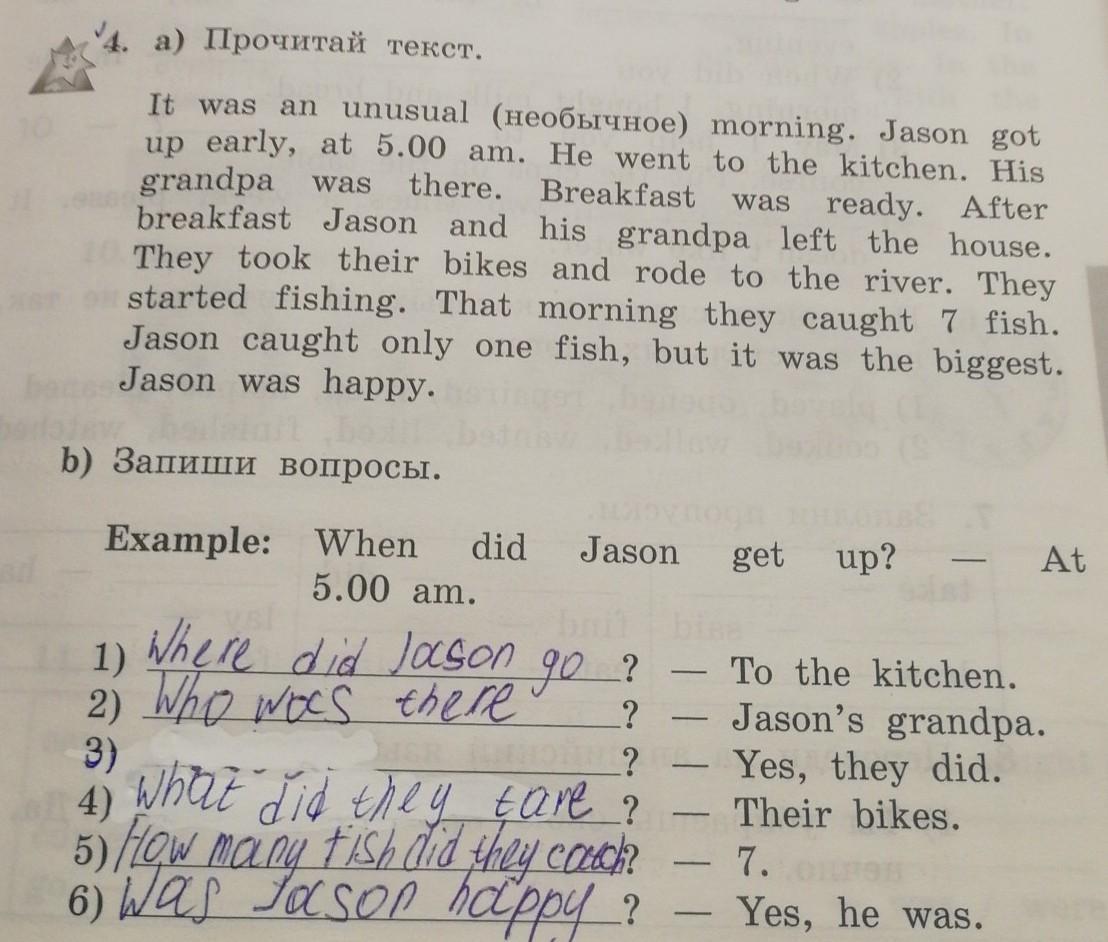 4. а) Прочитай текст.
It was an unusual (необычное) morning. Jason got
up early, at 5.00 am. He went to the kitchen. His
grandpa was there. Breakfast was ready. After
breakfast Jason and his grandpa left the house.
They took their bikes and rode to the river. They
started fishing. That morning they caught 7 fish.
Jason caught only one fish, but it was the biggest.
Jason was happy.
b) Запиши вопросы.
Example: When did Jason get up? — At
5.00 am.
1) Where did Jason go ? — To the kitchen.
2) Who was there ? — Jason's grandpa.
3) ? — Yes, they did.
4) What did they tare ? — Their bikes.
5) How many fish did they catch? — 7.
6) Was Jason happy ? — Yes, he was.